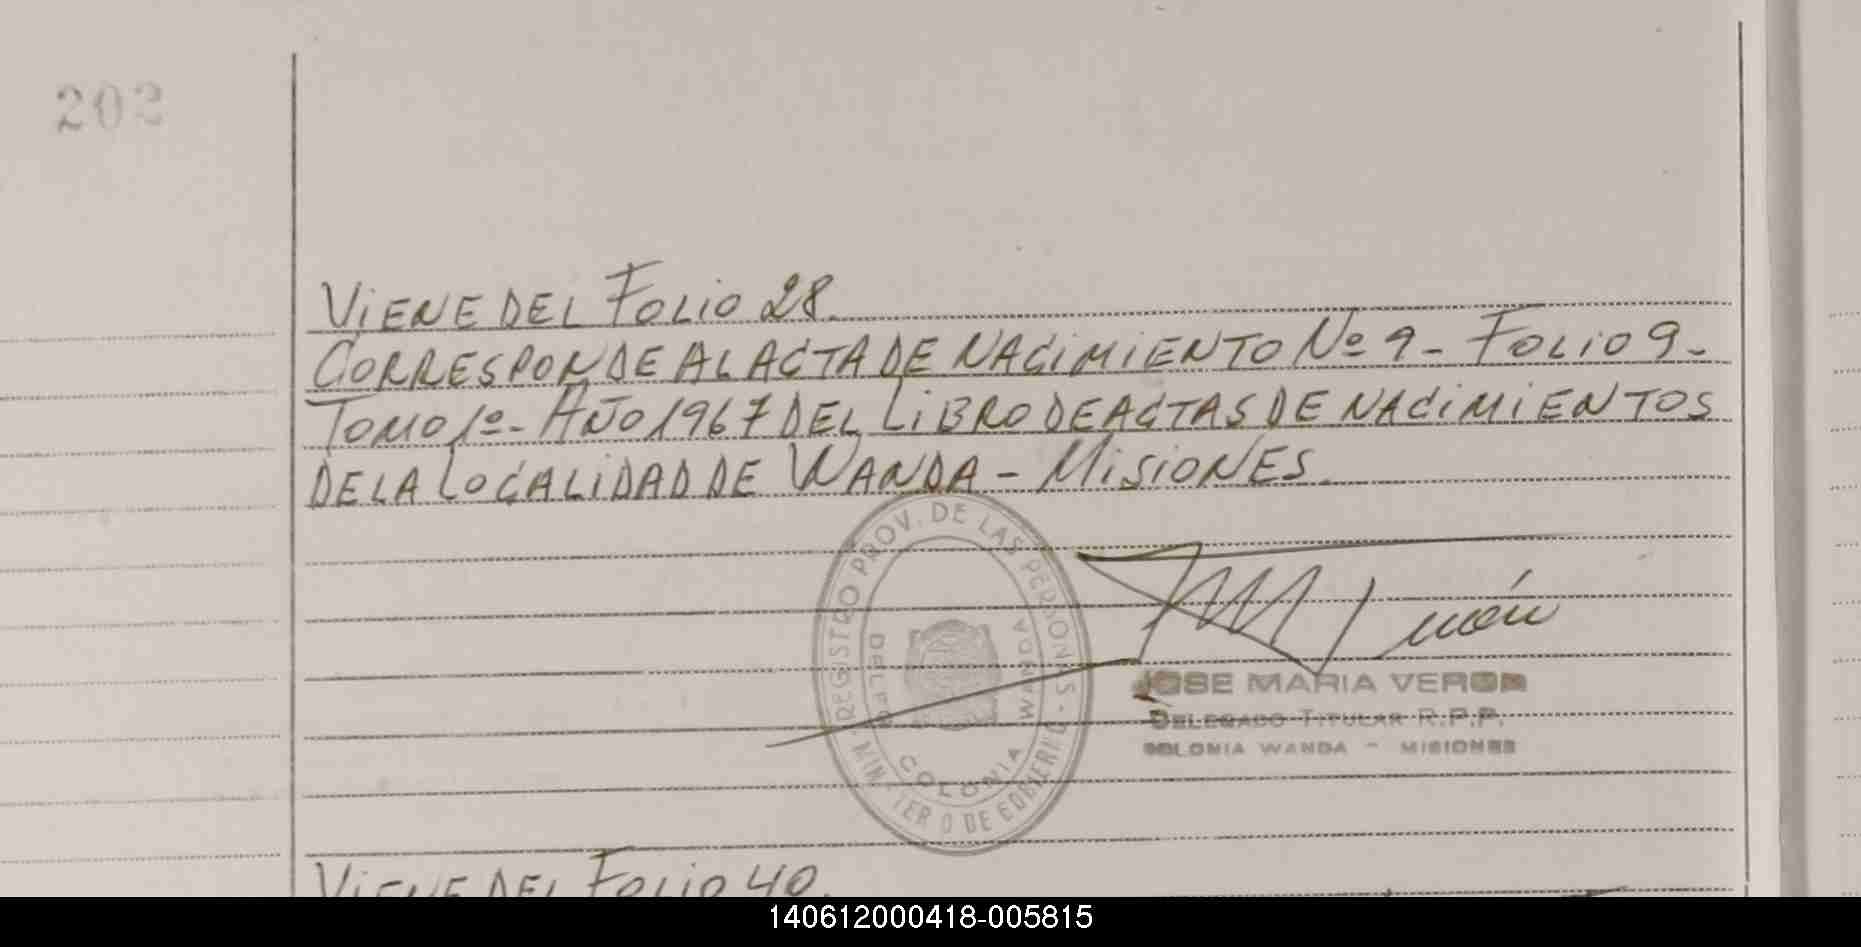 202
VIENE DEL FOLIO 28.
CORRESPONDE AL ACTA DE NACIMIENTO Nº 9 - FOLIO 9-
TOMO 1º- AÑO 1967 DEL LIBRO DE ACTAS DE NACIMIENTOS
DE LA LOCALIDAD DE WANDA - MISIONES.
REGISTRO PROV. DE LAS PERSONAS - MINISTERIO DE GOBIERNO
COLONIA WANDA
JOSE MARIA VERON
DELEGADO TITULAR R.P.P.
COLONIA WANDA - MISIONES
VIENE DEL FOLIO 40.
140612000418-005815